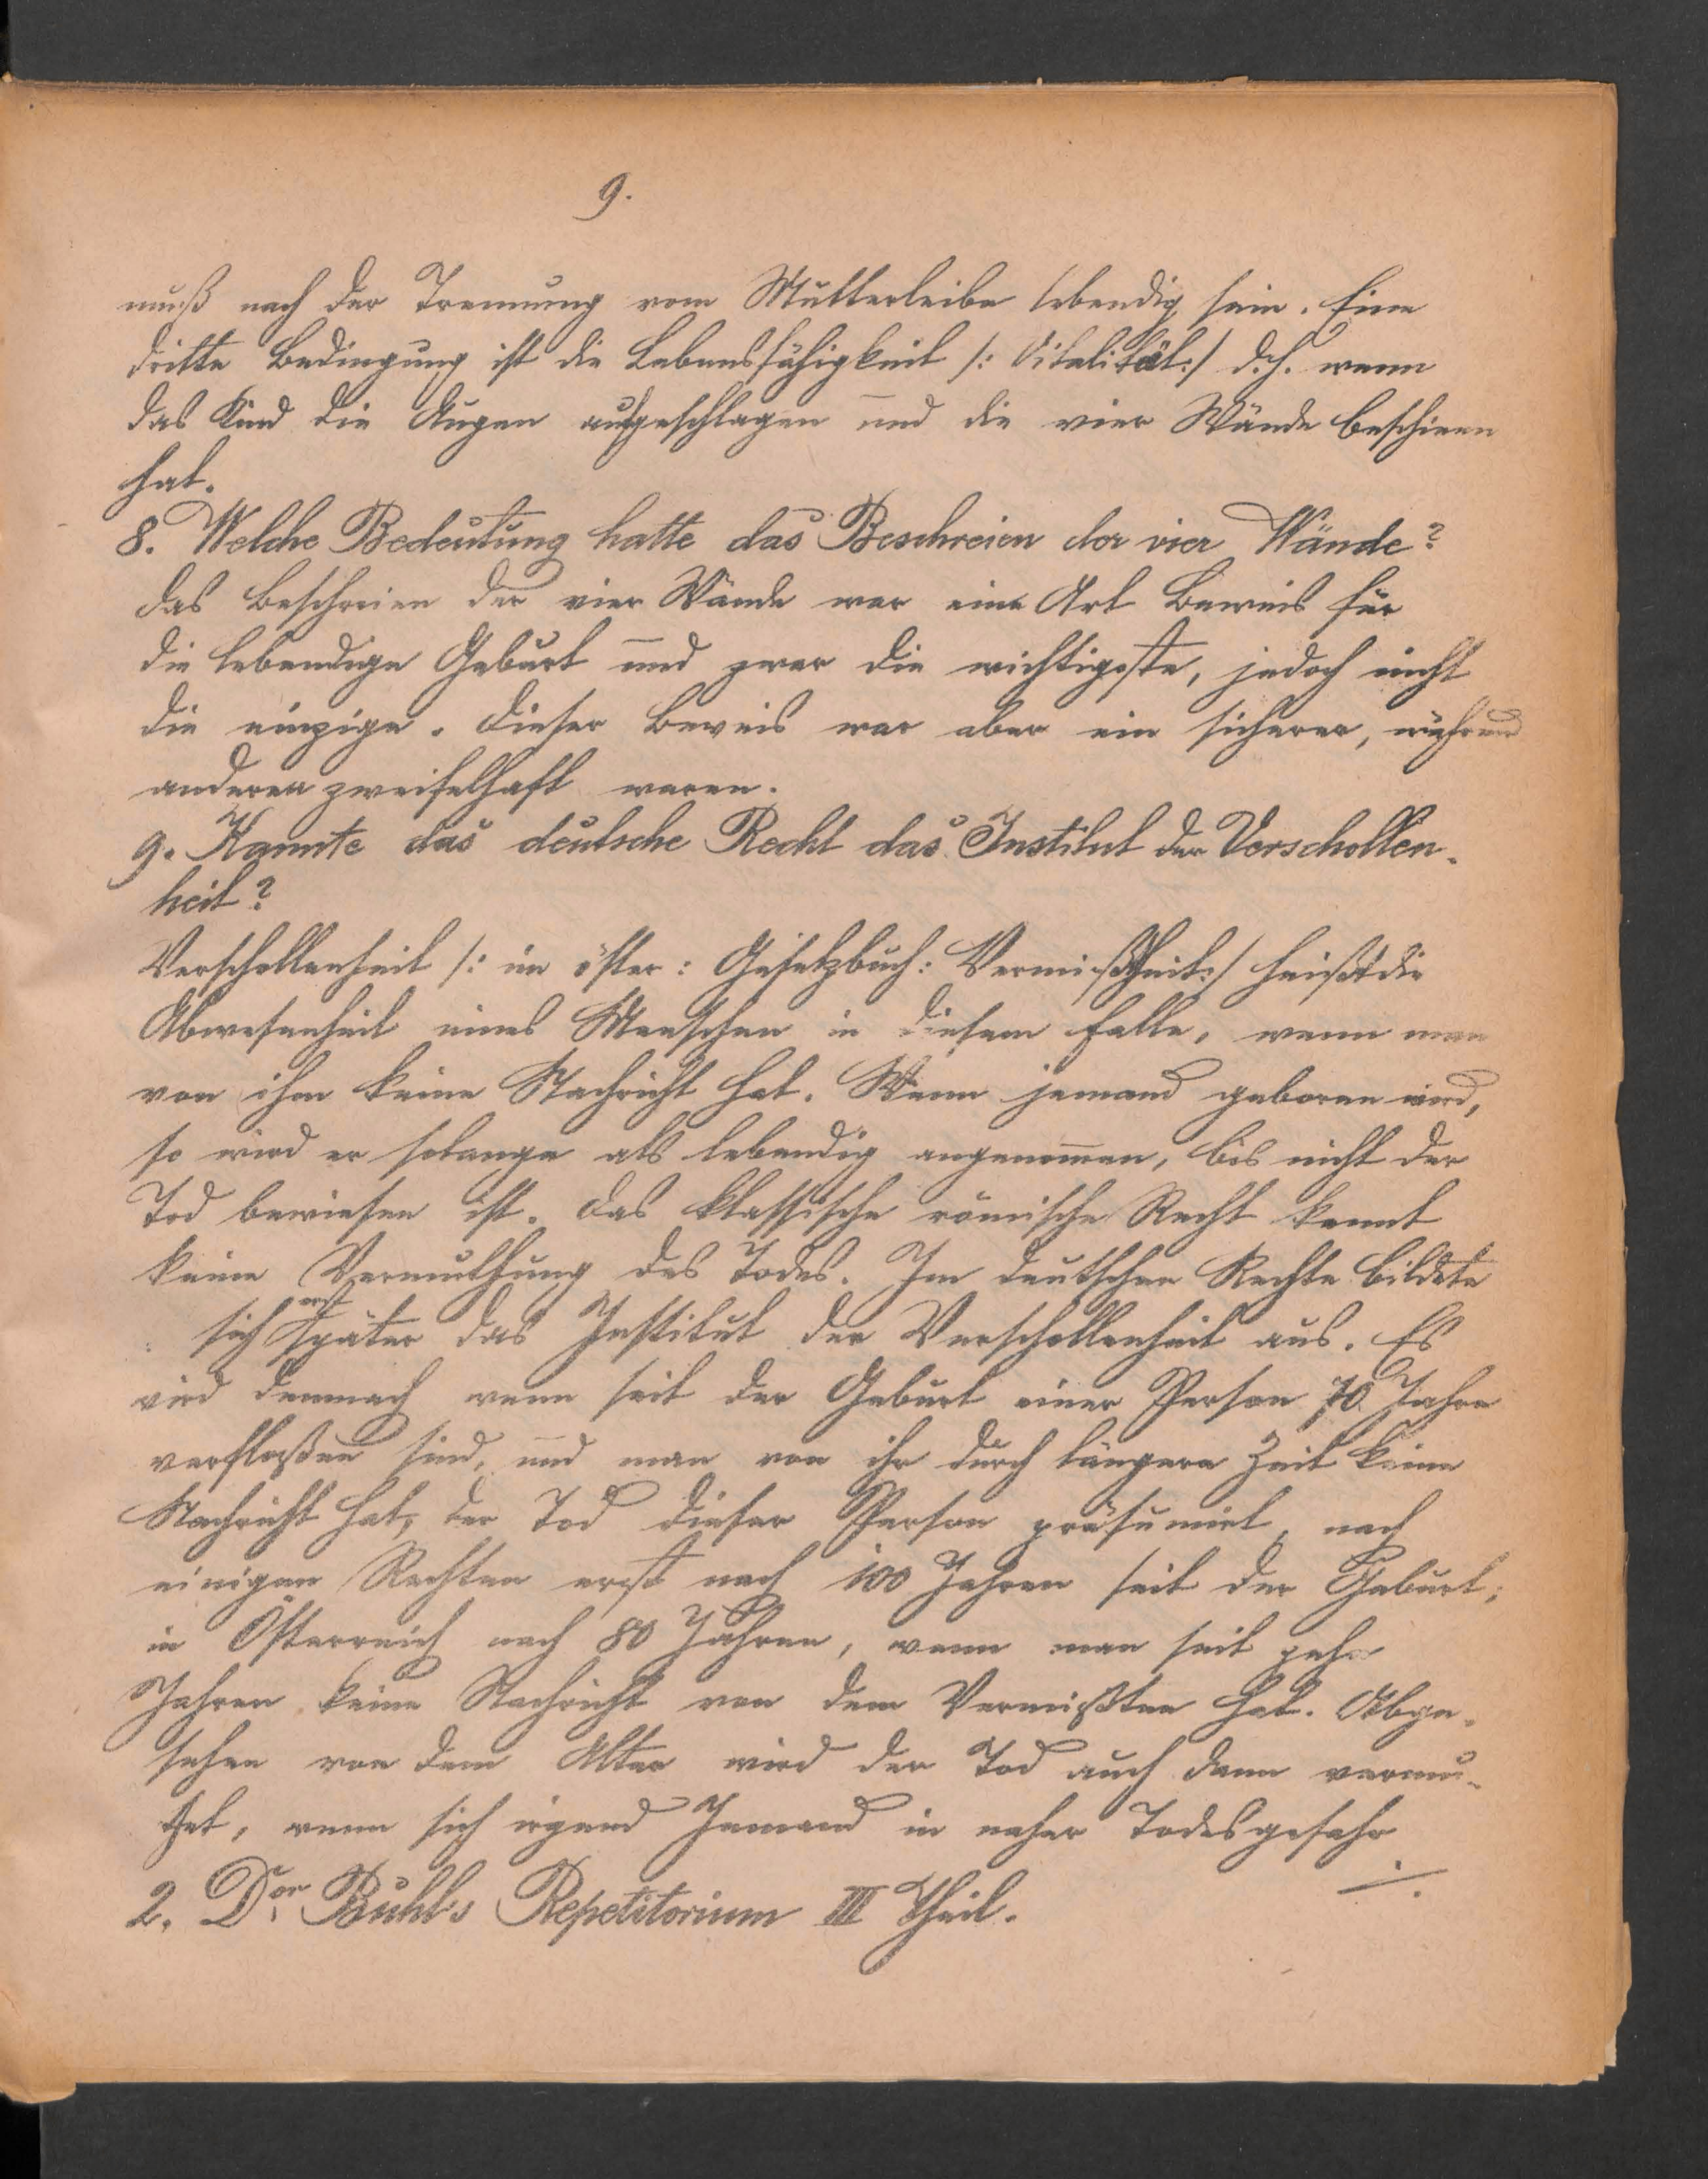 9.
muß nach der Trennung vom Mutterleibe lebendig sein. Eine
dritte Bedingung ist die Lebensfähigkeit /: Vitalität:/ d.h. wenn
das Kind die Augen aufgeschlagen und die vier Wände beschieen
hat.
8. Welche Bedeutung hatte das Beschreien der vier Wände?
Das Beschreien der vier Wände war eine Art Beweis für
die lebendige Geburt und zwar die wichtigste, jedoch nicht
die einzige. Dieser Beweis war aber ein sicherer, während
anderen zweifelhaft waren.
9. Kannte das deutsche Recht das Institut der Verschollen-
heit?
Verschollenheit /: im öster: Gesetzbuch: Vermißtheit:/ heißt die
Abwesenheit eines Menschen in diesem Falle, wenn man
von ihm keine Nachricht hat. Wenn jemand geboren wird,
so wird er solange als lebendig angenommen, bis nicht der
Tod bewiesen ist. Das klassische römische Recht kennt
keine Vermuthung des Todes. Im deutschen Rechte bildete
sich erst später das Institut der Verschollenheit aus. Es
wird demnach wenn seit der Geburt einer Person 70 Jahre
verfloßen sind, und man von ihr durch längere Zeit keine
Nachricht hat, der Tod dieser Person präsumirt, nach
einigen Rechten erst nach 100 Jahren seit der Geburt;
in Österreich nach 80 Jahren, wenn man seit zehn
Jahren keine Nachricht von dem Vermißten hat. Abge-
sehen von dem Alter wird der Tod auch dann vermu-
thet, wenn sich irgend Jemand in naher Todesgefahr
./.
2. Dor Buhl's Repetitorium III Theil.